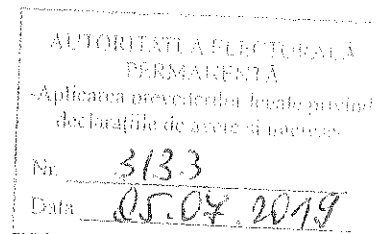 AUTORITATEA ELECTORALĂ
PERMANENTĂ
-Aplicarea prevederilor legale privind
declarațiile de avere și interese-
Nr. 3133
Data 05.07.2019